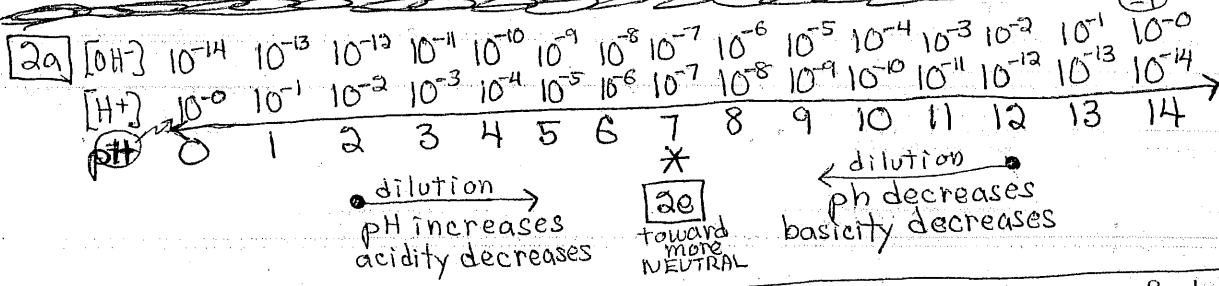 2a [OH-] 10⁻¹⁴ 10⁻¹³ 10⁻¹² 10⁻¹¹ 10⁻¹⁰ 10⁻⁹ 10⁻⁸ 10⁻⁷ 10⁻⁶ 10⁻⁵ 10⁻⁴ 10⁻³ 10⁻² 10⁻¹ 10⁻⁰
[H+] 10⁻⁰ 10⁻¹ 10⁻² 10⁻³ 10⁻⁴ 10⁻⁵ 10⁻⁶ 10⁻⁷ 10⁻⁸ 10⁻⁹ 10⁻¹⁰ 10⁻¹¹ 10⁻¹² 10⁻¹³ 10⁻¹⁴
pH 0 1 2 3 4 5 6 7 8 9 10 11 12 13 14
dilution
pH increases
acidity decreases
*
2e
toward
more
NEUTRAL
dilution
ph decreases
basicity decreases